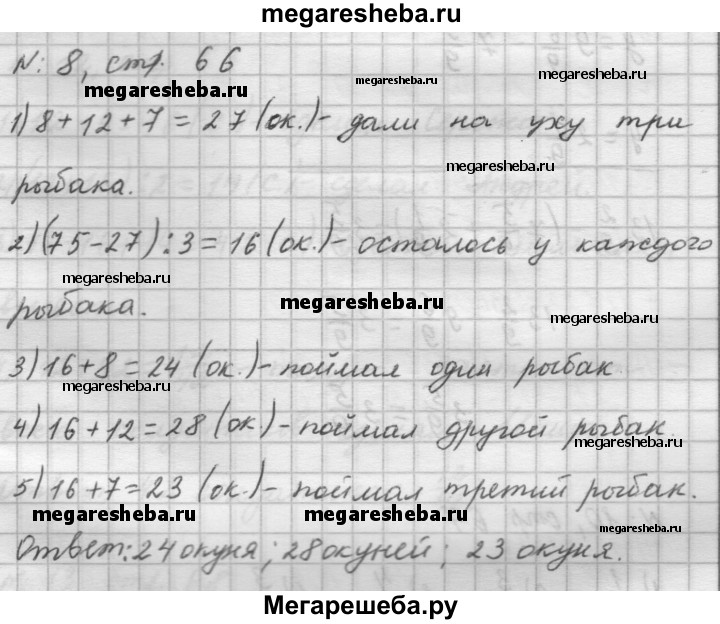 megaresheba.ru
N: 8, стр. 66
megaresheba.ru
megaresheba.ru
megaresheba.ru
1) 8 + 12 + 7 = 27 (ок.)- дали на уху три
megaresheba.ru
рыбака.
2) (75-27) : 3 = 16 (ок.)- осталось у каждого
megaresheba.ru
megaresheba.ru
рыбака.
megaresheba.ru
3) 16+8 = 24 (ок.)-поймал один рыбак
megaresheba.ru
megaresheba.ru
4) 16 + 12 = 28 (ок.)- поймал другой рыбак.
megaresheba.ru
5) 16 + 7 = 23 (ок.)- поймал третий рыбак.
megaresheba.ru
megaresheba.ru
megaresheba.ru
Ответ: 24 окуня; 28 окуней; 23 окуня.
Мегарешеба.ру